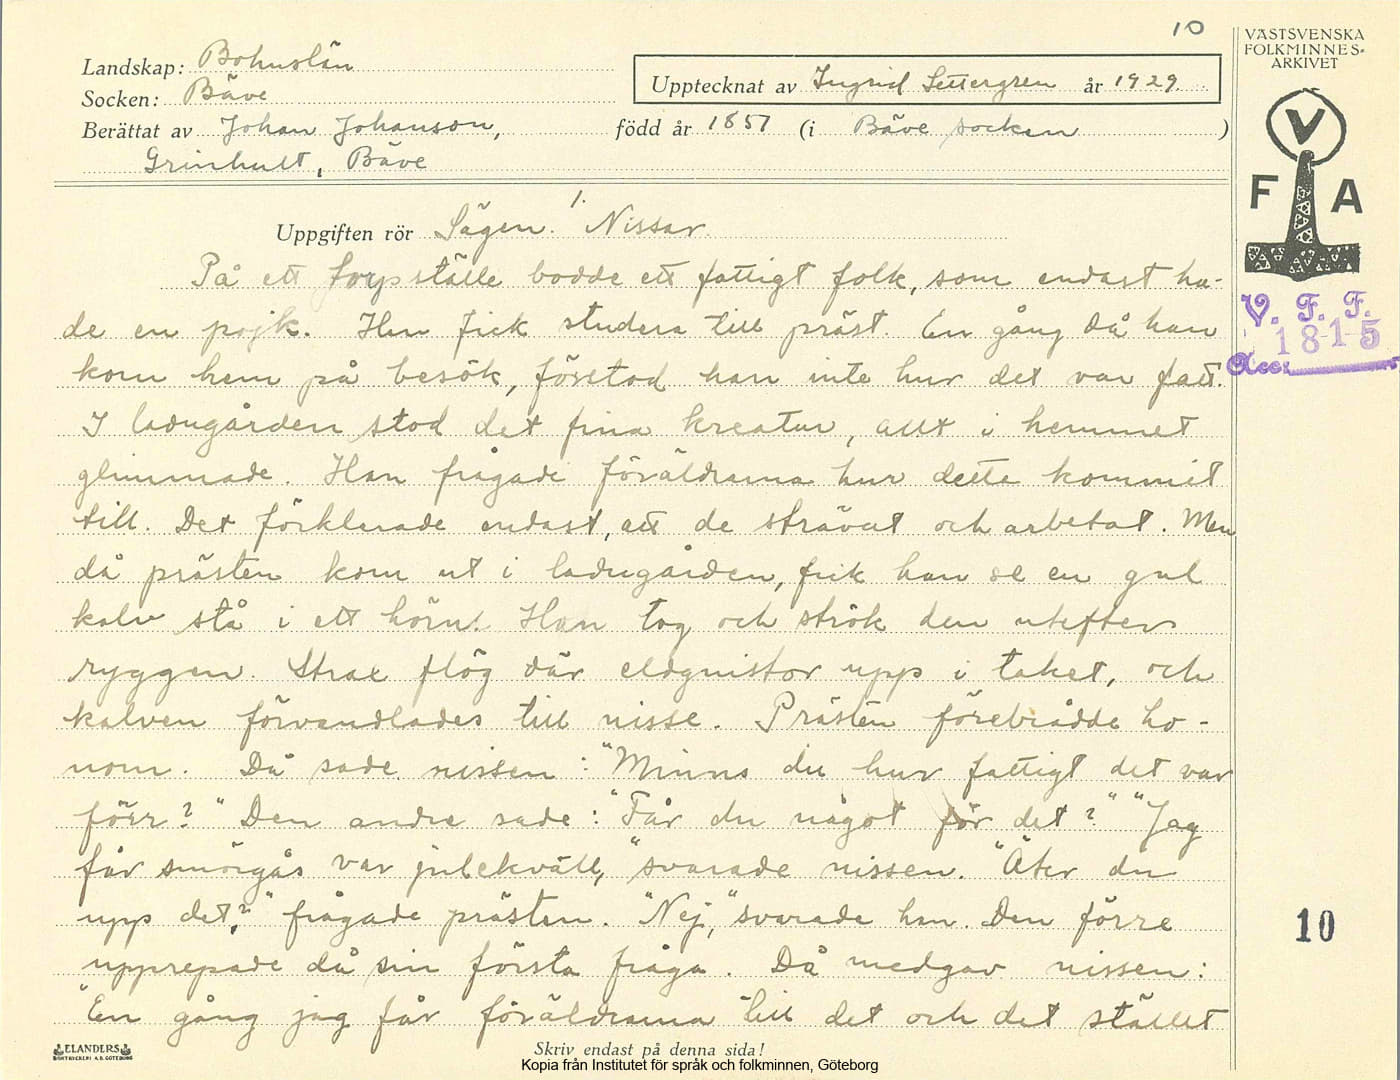 10
VÄSTSVENSKA
FOLKMINNES-
ARKIVET
Landskap: Bohuslän
Upptecknat av Ingrid Settergren år 1929.
Socken: Bäve
Berättat av Johan Johanson, född år 1857 (i Bäve socken )
Grinhult, Bäve
V
F A
1.
Uppgiften rör Sägen. Nissar.
V. F. F.
1815
Acc.
På ett torpställe bodde ett fattigt folk, som endast ha-
de en pojk. Han fick studera till präst. En gång då han
kom hem på besök, förstod han inte hur det var fatt.
I ladugården stod det fina kreatur, allt i hemmet
glimmade. Han frågade föräldrarna hur detta kommit
till. Det förklarade endast, att de strävat och arbetat. Men
då prästen kom ut i ladugården, fick han se en gul
kalv stå i ett hörn. Han tog och strök den utefter
ryggen. Strax flög där eldgnistor upp i taket, och
kalven förvandlades till nisse. Prästen förebrådde ho-
nom. Då sade nissen: "Minns du hur fattigt det var
förr?" Den andre sade: "Får du något för det?" "Jag
får smörgås var julekväll," svarade nissen. "Äter du
upp det?," frågade prästen. "Nej," svarade han. Den förre
upprepade då sin första fråga. Då medgav nissen:
"En gång jag får föräldrarna till det och det stället
10
ELANDERS
BOKTRYCKERI A.B. GÖTEBORG
Skriv endast på denna sida!
Kopia från Institutet för språk och folkminnen, Göteborg